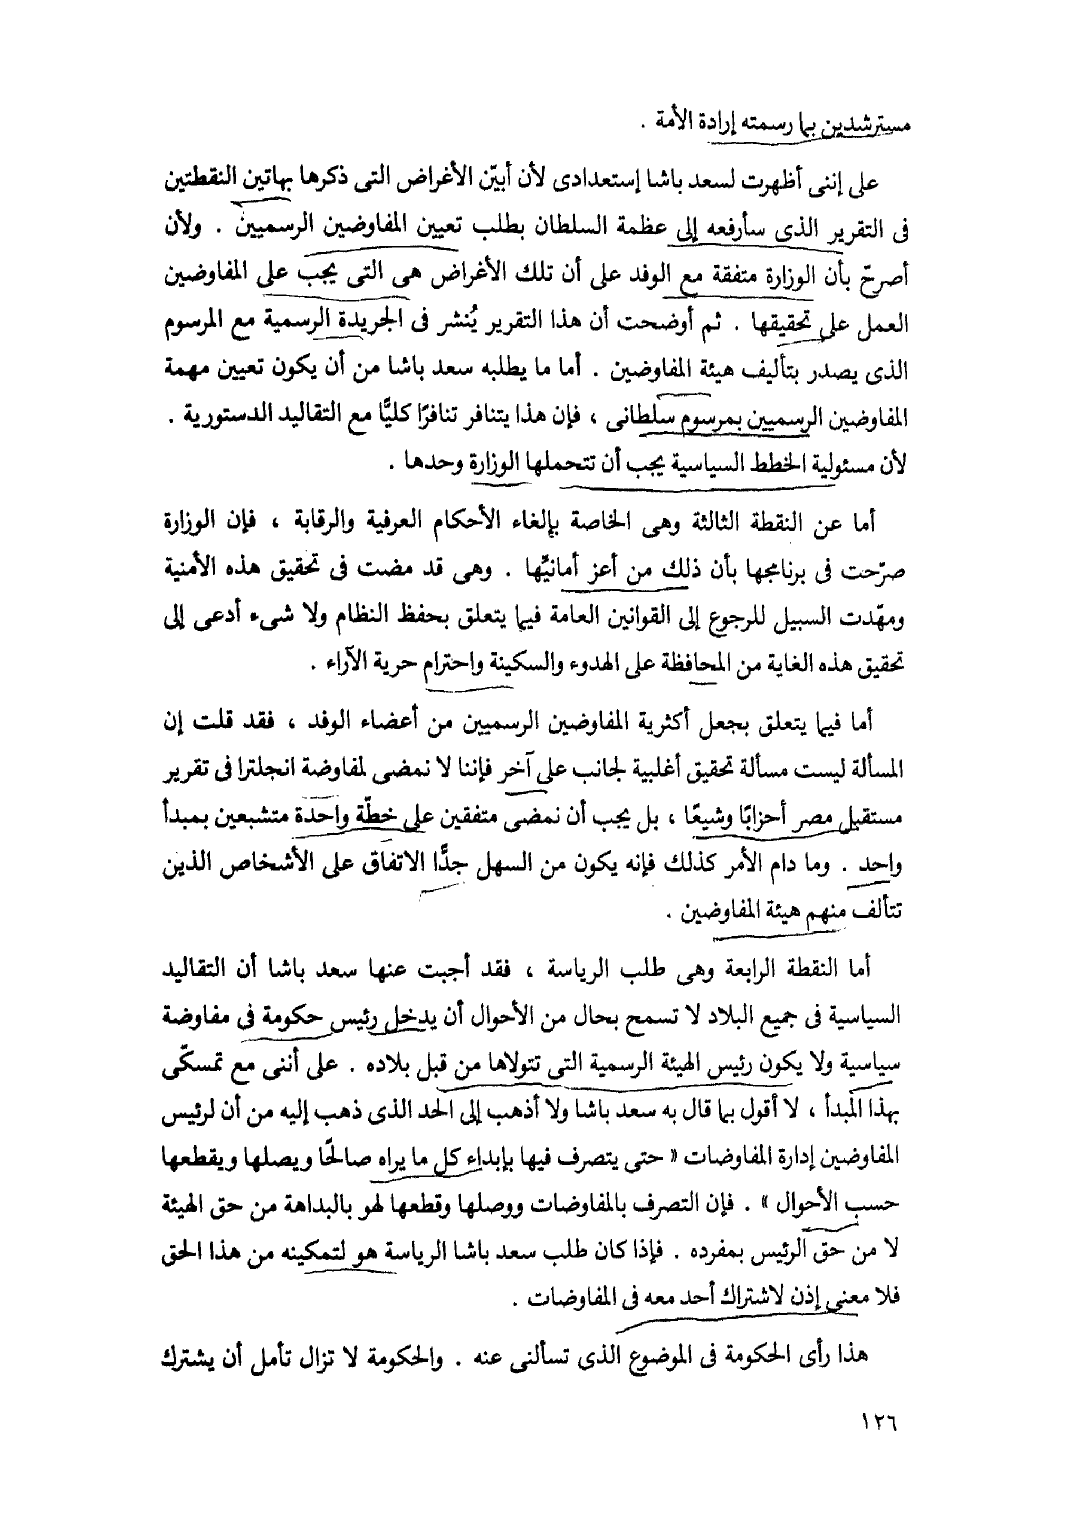 مسترشدين بما رسمته إرادة الأمة .
على إننى أظهرت لسعد باشا إستعدادى لأن أبيّن الأغراض التى ذكرها بهاتين النقطتين
فى التقرير الذى سأرفعه إلى عظمة السلطان بطلب تعيين المفاوضين الرسميين . ولأن
أصرحّ بأن الوزارة متفقة مع الوفد على أن تلك الأغراض هى التى يجب على المفاوضين
العمل على تحقيقها . ثم أوضحت أن هذا التقرير يُنشر فى الجريدة الرسمية مع المرسوم
الذى يصدر بتأليف هيئة المفاوضين . أما ما يطلبه سعد باشا من أن يكون تعيين مهمة
المفاوضين الرسميين بمرسوم سلطانى ، فإن هذا يتنافر تنافرًا كليًّا مع التقاليد الدستورية .
لأن مسئولية الخطط السياسية يجب أن تتحملها الوزارة وحدها .
أما عن النقطة الثالثة وهى الخاصة بإلغاء الأحكام العرفية والرقابة ، فإن الوزارة
صرّحت فى برنامجها بأن ذلك من أعز أمانيَّها . وهى قد مضت فى تحقيق هذه الأمنية
ومهّدت السبيل للرجوع إلى القوانين العامة فيما يتعلق بحفظ النظام ولا شىء أدعى إلى
تحقيق هذه الغاية من المحافظة على الهدوء والسكينة واحترام حرية الآراء .
أما فيما يتعلق بجعل أكثرية المفاوضين الرسميين من أعضاء الوفد ، فقد قلت إن
المسألة ليست مسألة تحقيق أغلبية لجانب على آخر فإننا لا نمضى لمفاوضة انجلترا فى تقرير
مستقبل مصر أحزابًا وشيعًا ، بل يجب أن نمضى متفقين على خطّة واحدة متشبعين بمبدأ
واحد . وما دام الأمر كذلك فإنه يكون من السهل جدًّا الاتفاق على الأشخاص الذين
تتألف منهم هيئة المفاوضين .
أما النقطة الرابعة وهى طلب الرياسة ، فقد أجبت عنها سعد باشا أن التقاليد
السياسية فى جميع البلاد لا تسمح بحال من الأحوال أن يدخل رئيس حكومة فى مفاوضة
سياسية ولا يكون رئيس الهيئة الرسمية التى تتولاها من قبل بلاده . على أننى مع تمسكّى
بهذا المبدأ ، لا أقول بما قال به سعد باشا ولا أذهب إلى الحد الذى ذهب إليه من أن لرئيس
المفاوضين إدارة المفاوضات « حتى يتصرف فيها بإبداء كل ما يراه صالحًا ويصلها ويقطعها
حسب الأحوال » . فإن التصرف بالمفاوضات ووصلها وقطعها لهو بالبداهة من حق الهيئة
لا من حق الرئيس بمفرده . فإذا كان طلب سعد باشا الرياسة هو لتمكينه من هذا الحق
فلا معنى إذن لاشتراك أحد معه فى المفاوضات .
هذا رأى الحكومة فى الموضوع الذى تسألنى عنه . والحكومة لا تزال تأمل أن يشترك
١٢٦